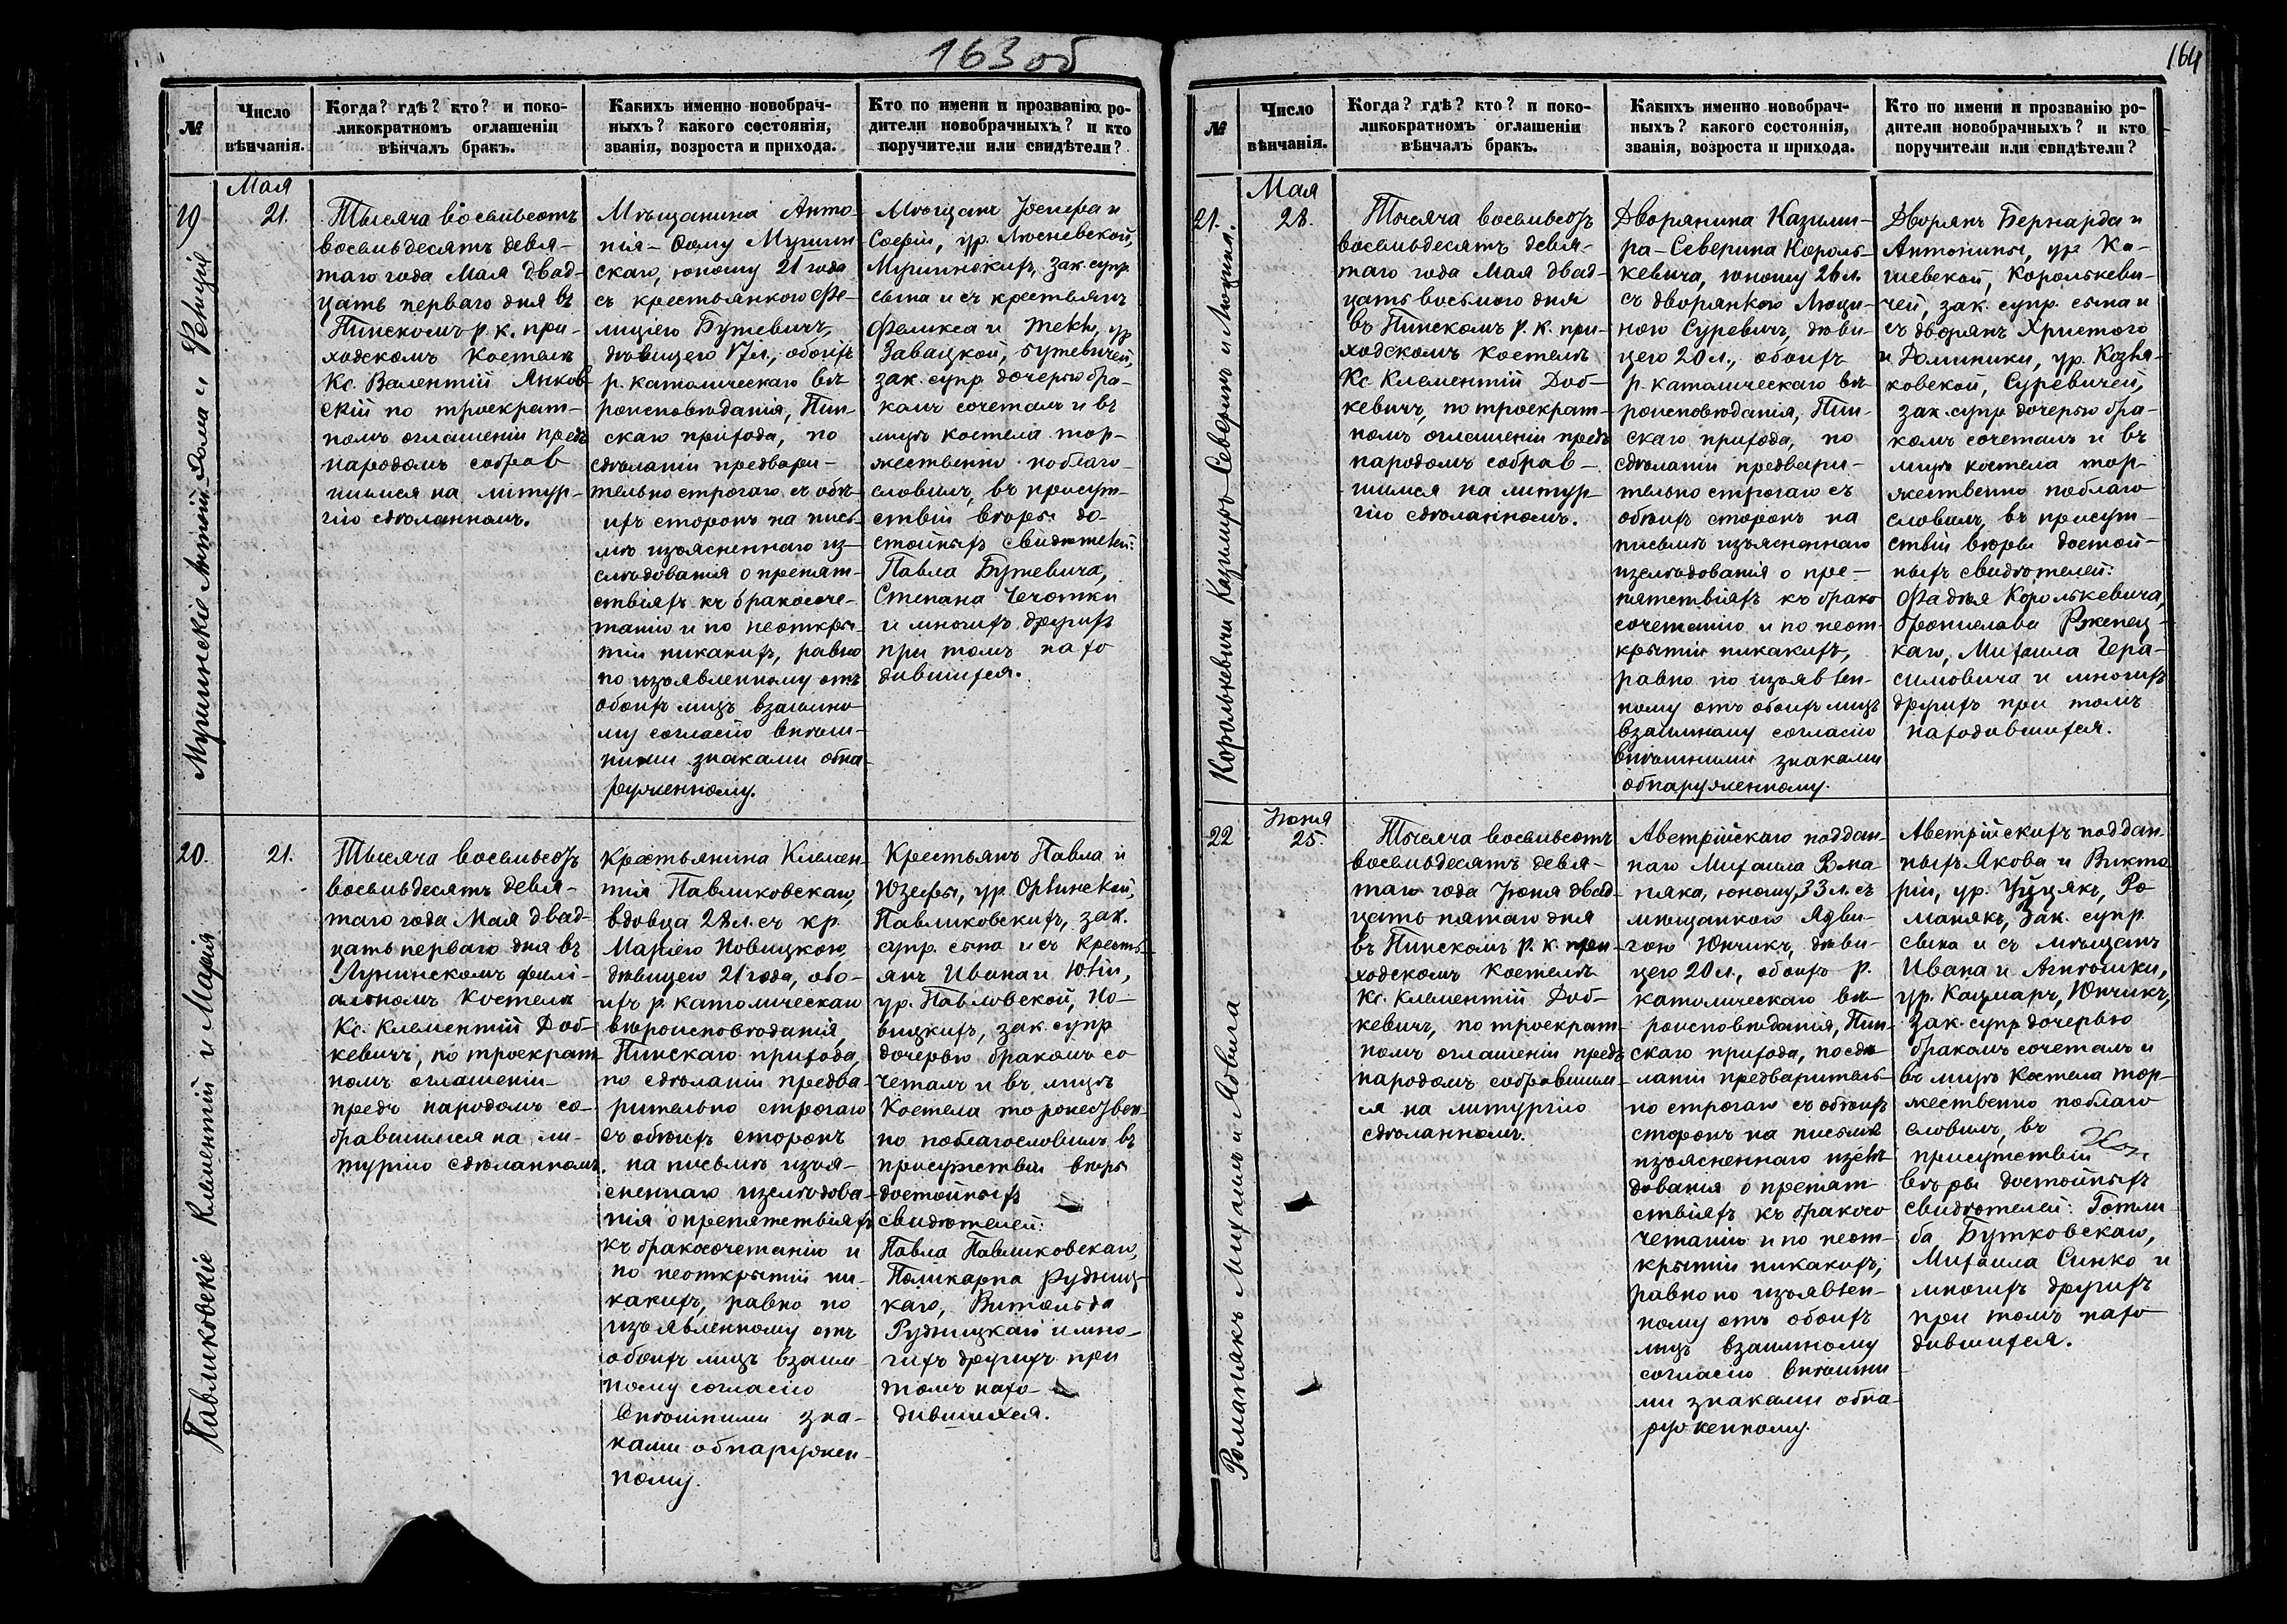 163 об
№
Число
вѣнчанія.
Когда? гдѣ? кто? и поко-
ликократномъ оглашеніи
вѣнчалъ бракъ.
Какихъ именно новобрач-
ныхъ? какого состоянія,
званія, возроста и прихода.
Кто по имени и прозванію ро-
дители новобрачныхъ? и кто
поручители или свидѣтели?
19
Антоній и Фелиція
Мая
21.
Тысяча восемьсотъ
восемьдесятъ девя-
таго года Мая двад-
цать перваго дня въ
Пинскомъ р. к. при-
ходскомъ костелѣ
Кс. Валентій Янков
скій по троекрат-
номъ оглашеніи предъ
народомъ собрав
шимся на литур-
гію сдѣланномъ.
Мѣщанина Анто-
нія
скаго, юношу 21 года
съ крестьянкою Фе-
лиціею Буткевичъ,
дѣвицею 17 л., обоихъ
р. католическаго вѣ-
роисповѣданія, Пин-
скаго прихода, по
сдѣланіи предвари-
тельно строгаго съ обѣ-
ихъ сторонъ на пись-
мѣ изъясненнаго из-
слѣдованія о препят-
ствіяхъ къ бракосоче-
танію и по неоткры-
тіи никакихъ, равно
по изъявленному отъ
обоихъ лицъ взаимно
му согласію внѣш-
ними знаками обна-
руженному.
Мѣщанъ Іосифа и
Софіи, ур.
зак. супр.
сына и съ крестьянъ
Феликса и Теклі, ур
Завацкой, Буткевичей,
зак. супр. дочерью бра-
комъ сочеталъ и въ
лицѣ костела тор-
жественно поблаго-
словилъ, въ присут-
ствіи вѣры до-
стойныхъ свидѣтелей:
Павла Буткевича,
Степана Чечотки
и многихъ другихъ
при томъ нахо
дившихся.
20.
Павликовскіе Клементій и Марія
21.
Тысяча восемьсотъ
восемьдесятъ девя-
таго года Мая двад-
цать перваго дня въ
Лунинскомъ филі-
альномъ костелѣ
Кс. Клементій Доб-
кевичъ, по троекрат
номъ оглашеніи
предъ народомъ со-
бравшимся на ли-
тургію сдѣланномъ.
Крестьянина Клемен-
тія Павликовскаго,
вдовца 28 л. съ кр.
Маріею Новицкою,
дѣвицею 21 года, обо-
ихъ р. католическаго
вѣроисповѣданія,
Пинскаго прихода,
по сдѣланіи предва-
рительно строгаго
съ обѣихъ сторонъ
на письмѣ изъя-
сненнаго изслѣдова-
нія о препятствіяхъ
къ бракосочетанію и
по неоткрытіи ни-
какихъ, равно по
изъявленному отъ
обоихъ лицъ взаим-
ному согласію
внѣшними зна-
ками обнаружен-
ному.
Крестьянъ Павла и
Юзефы, ур.
Павликовскихъ, зак.
супр. сына и съ кресть-
янъ Ивана и Юліи,
ур. Павловской, Но-
вицкихъ, зак. супр
дочерью бракомъ со
четалъ и въ лицѣ
костела торжествен-
но поблагословилъ въ
присутствіи вѣры
достойныхъ
свидѣтелей:
Павла Павликовскаго,
Поликарпа Рудниц-
каго, Витольда
Рудницкаго и мно-
гихъ другихъ при
томъ нахо-
дившихся.
164
№
Число
вѣнчанія.
Когда? гдѣ? кто? и поко-
ликократномъ оглашеніи
вѣнчалъ бракъ.
Какихъ именно новобрач-
ныхъ? какого состоянія,
званія, возроста и прихода.
Кто по имени и прозванію ро-
дители новобрачныхъ? и кто
поручители или свидѣтели?
21.
Королькевичи Казимиръ-Северинъ и Люцина.
Мая
28.
Тысяча восемьсотъ
восемьдесятъ девя-
таго года Мая двад-
цать восьмого дня
въ Пинскомъ р. к. при-
ходскомъ костелѣ
Кс Клементій Доб-
кевичъ, по троекрат-
номъ оглашеніи предъ
народомъ собрав-
шимся на литур-
гію сдѣланномъ.
Дворянина Казими-
ра-Северина Король-
кевича, юношу 26 л.
съ дворянкою Люци-
ною Суревичъ, дѣви-
цею 20 л., обоихъ
р. католическаго вѣ-
роисповѣданія, Пин-
скаго прихода, по
сдѣланіи предвари-
тельно строгаго съ
обѣихъ сторонъ на
письмѣ изъясненнаго
изслѣдованія о пре-
пятствіяхъ къ брако
сочетанію и по неот-
крытіи никакихъ,
равно по изъявлен-
ному отъ обоихъ лицъ
взаимному согласію
внѣшними знаками
обнаруженному.
Дворянъ Бернарда и
Антонины, ур
Королькеви-
чей, зак. супр. сына и
съ дворянъ
и Доминики, ур. Козля-
ковской, Суревичей,
зак. супр дочерью бра-
комъ сочеталъ и въ
лицѣ костела тор-
жественно поблаго
словилъ, въ присут-
ствіи вѣры достой-
ныхъ свидѣтелей:
Фадѣя Королькевича,
Бронислава Ржепец-
каго, Михаила Гера-
симовича и многихъ
другихъ при томъ
находившихся.
22
Романякъ Михаилъ и Ядвига
Іюня
25.
Тысяча восемьсотъ
восемьдесятъ девя-
таго года Іюня двад-
цать пятаго дня
въ Пинскомъ р. к. при-
ходскомъ костелѣ
Кс. Клементій Доб-
кевичъ, по троекрат-
номъ оглашеніи предъ
народомъ собравшим-
ся на литургію
сдѣланномъ.
Австрійскаго поддан-
наго Михаила Рома-
няка, юношу, 33 л. съ
мѣщанкою Ядви-
гою Юнчикъ, дѣви-
цею 20 л., обоихъ р.
католическаго вѣ-
роисповѣданія, Пин-
скаго прихода, по сдѣ-
ланіи предваритель-
но строгаго съ обѣихъ
сторонъ на письмѣ
изъясненнаго изслѣ-
дованія о препят
ствіяхъ къ бракосо
четанію и по неот-
крытіи никакихъ,
равно по изъявлен-
ному отъ обоихъ
лицъ взаимному
согласію внѣшни
ми знаками обна-
руженному.
Австрійскихъ поддан-
ныхъ Якова и Викто
ріи, ур. Ро
манякъ, зак. супр.
сына и съ мѣщанъ
Ивана и Агнѣшки,
ур. Кацмаръ, Юнчикъ,
зак. супр дочерью
бракомъ сочеталъ и
въ лицѣ костела тор-
жественно поблаго
словилъ, въ
присутствіи
вѣры достойныхъ
свидѣтелей: Готли-
ба Бутковскаго,
Михаила Синко и
многихъ другихъ
при томъ нахо
дившихся.